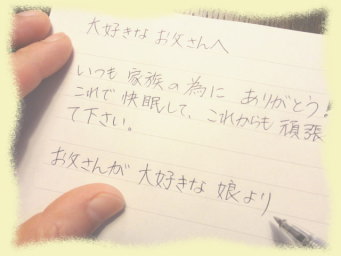 大好きな お父さんへ
いつも 家族の為に ありがとう!
これで 快眠して、これからも 頑張
て下さい。
お父さんが 大好きな 娘より